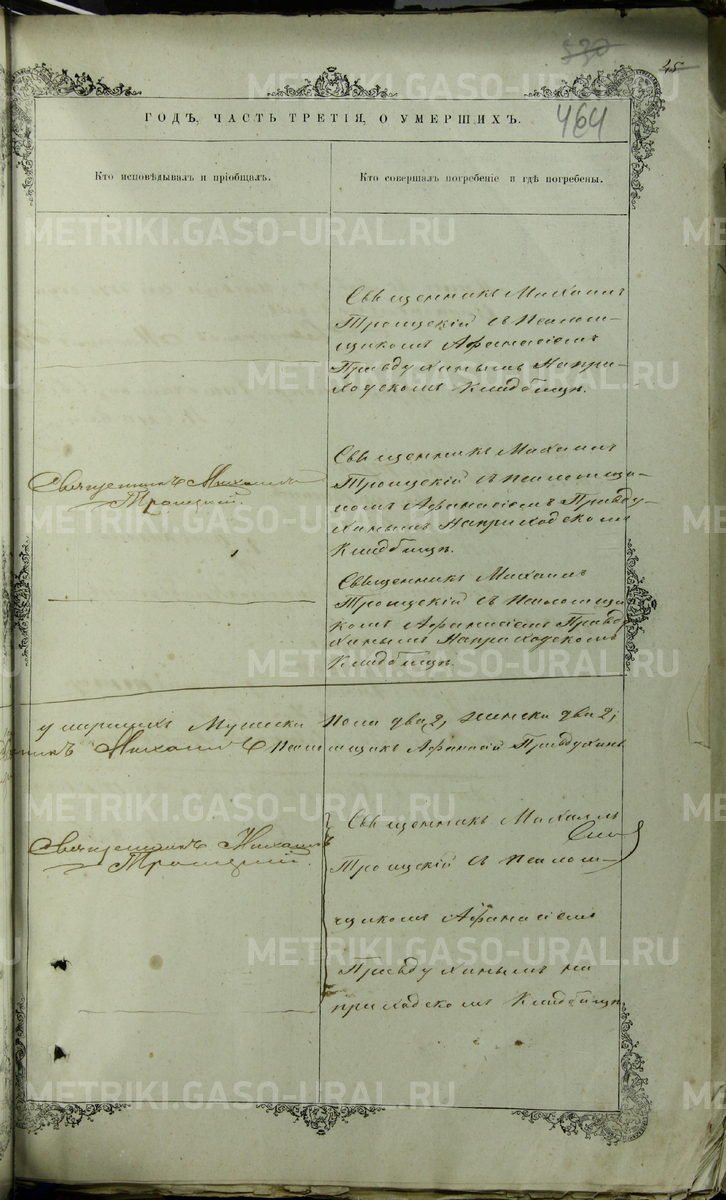 530
45
464
ГОДЪ, ЧАСТЬ ТРЕТІЯ, О УМЕРШИХЪ.
Кто исповѣдывалъ и пріобщалъ.
Кто совершалъ погребеніе и гдѣ погребены.
Священникъ Михаилъ
Троицкій съ Псалом-
щикомъ Афанасіемъ
Правдухинымъ На при-
ходскомъ Кладбищѣ.
Священникъ Михаилъ
Троицкій.
Священникъ Михаилъ
Троицкій съ псаломщи-
комъ Афанасіемъ Правду-
хинымъ На приходскомъ
Кладбищѣ.
Священникъ Михаилъ
Троицкій съ Псаломщи
комъ Афанасіемъ Правду
хинымъ На приходскомъ
Кладбищѣ.
умершихъ Мужеска пола два 2, женска два 2;
Михаилъ Псаломщикъ Афанасій Правдухинъ
Священникъ Михаилъ
Троицкій.
Священникъ Михаилъ
Троицкій съ псалом-
щикомъ Афанасіемъ
Правдухинымъ на
приходскомъ Кладбищѣ.
METRIKI.GASO-URAL.RU